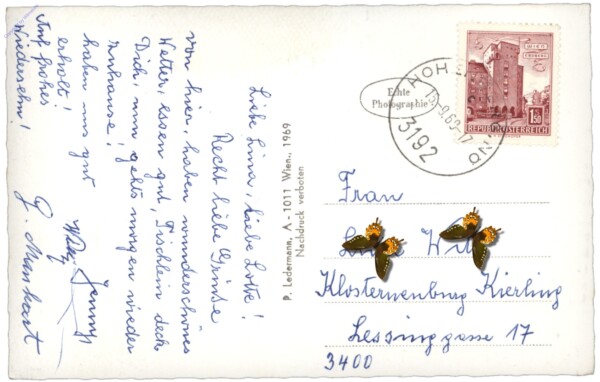 Liebe Lina, liebe Lotte!
Recht liebe Grüße
von hier, haben wunderschönes
Wetter, essen gut, Tischlein deck
Dich, nun gehts morgen wieder
zuhause!
haben uns gut
erholt!
Auf frohes
Wiedersehn!
P. Ledermann, A-1011 Wien., 1969
Nachdruck verboten
Echte
Photographie
HOH
3192
WIEN
REPUBLIK ÖSTERREICH
1.50
Frau
Klosterneuburg Kierling
Lessinggasse 17
3400